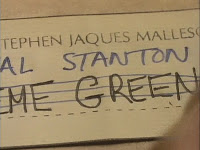 STEPHEN JAQUES MALLESO
AL STANTON
EME GREEN